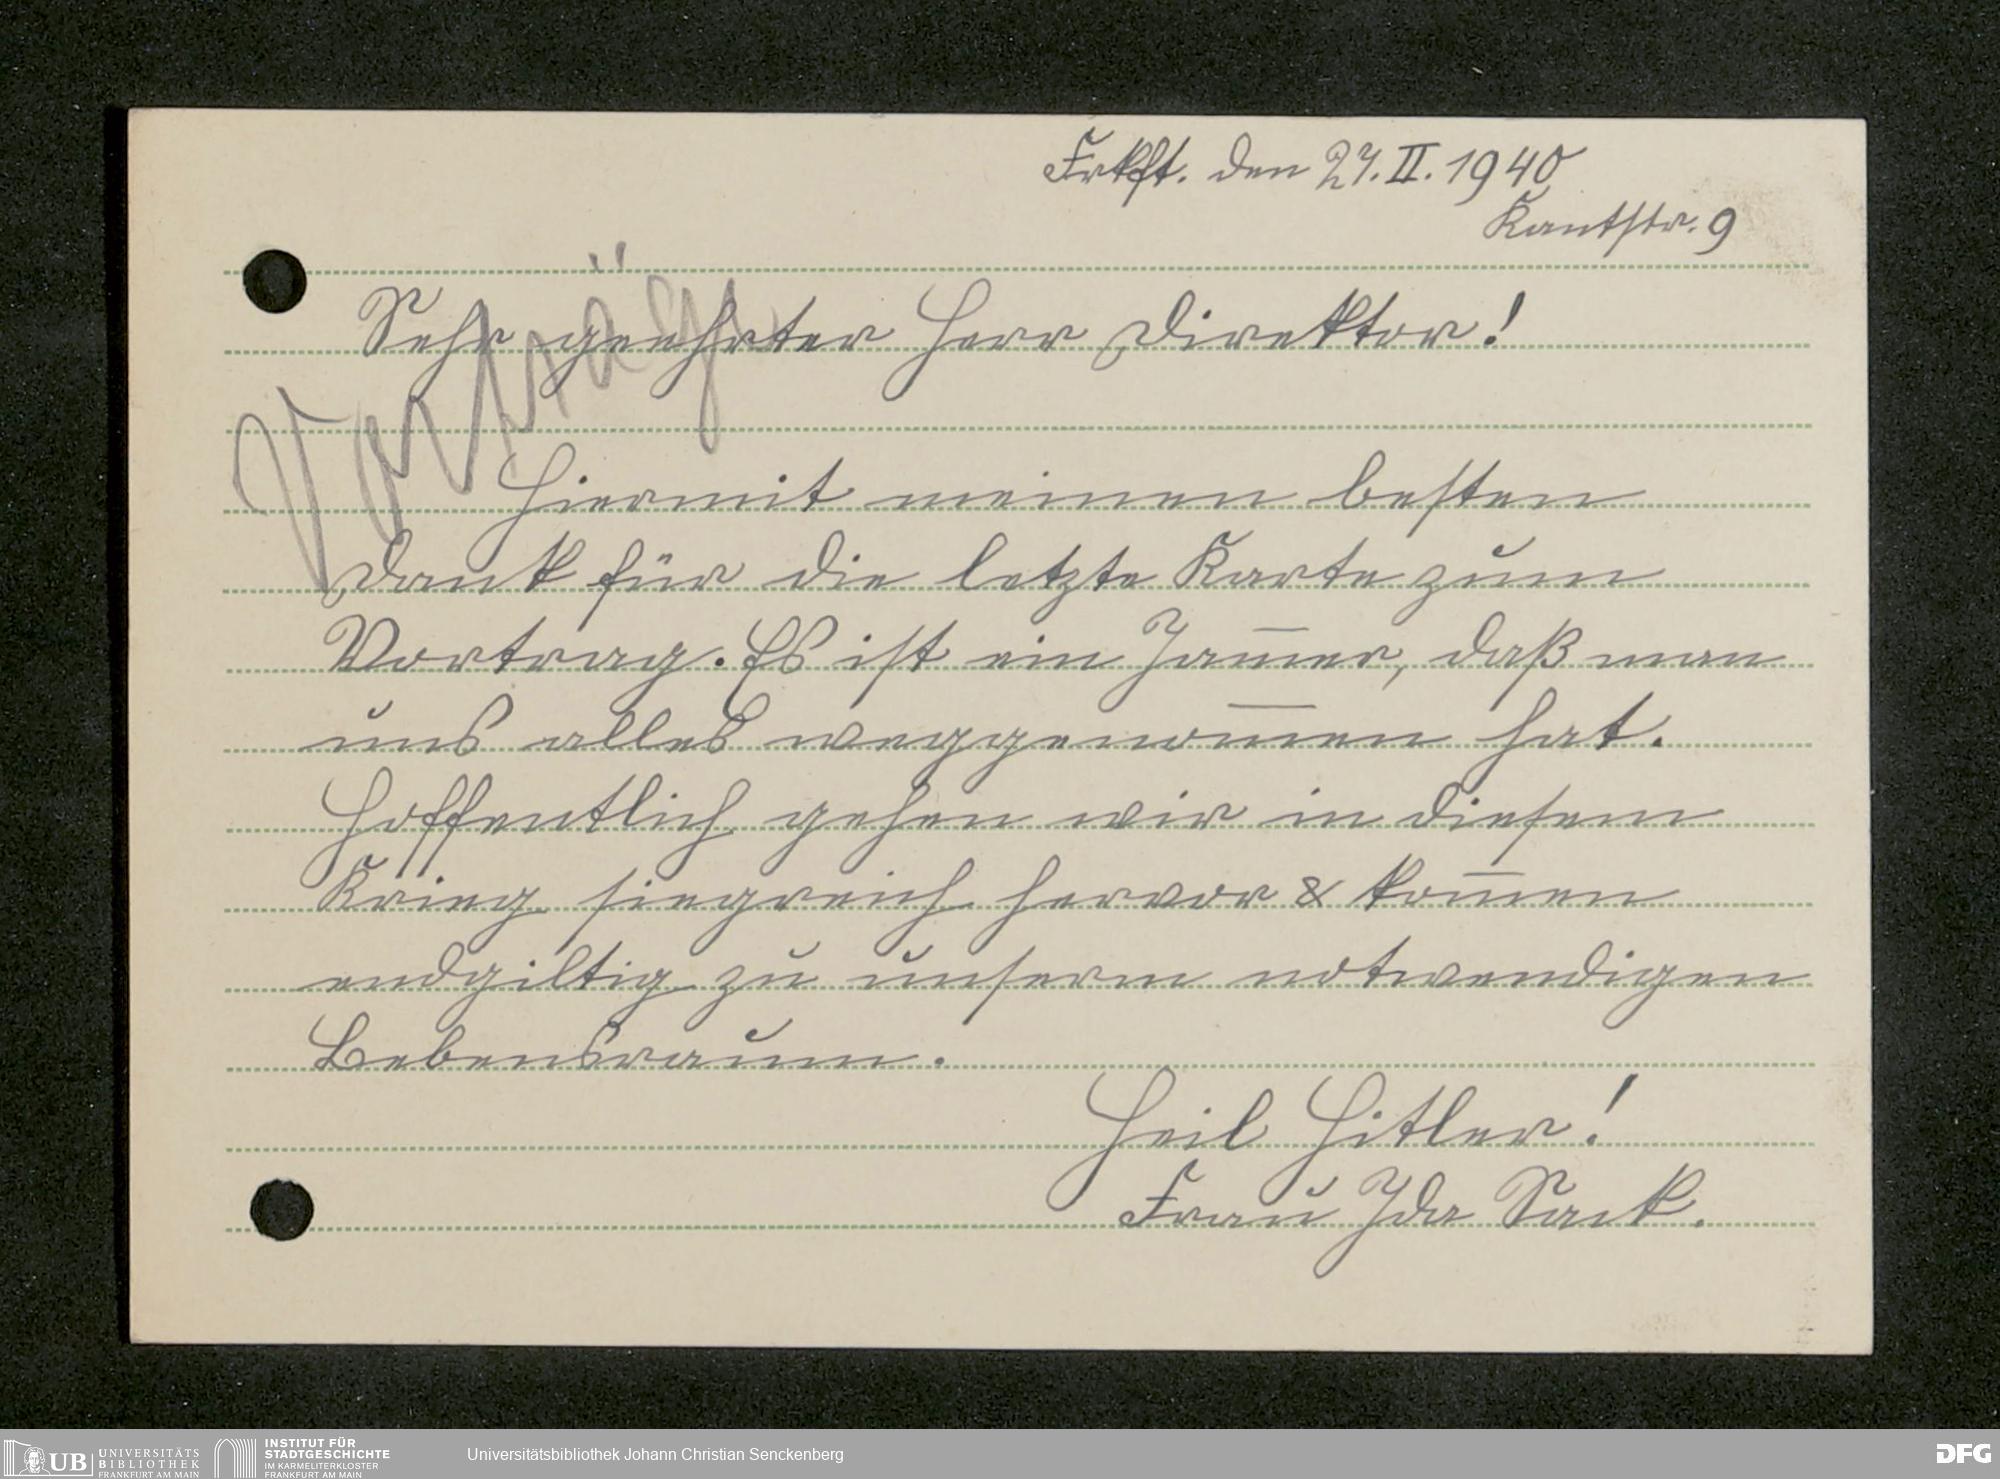 Frkft. den 27.II.1940
Kantstr. 9
Vorträge
Sehr geehrter Herr Direktor!
Hiermit meinen besten
Dank für die letzte Karte zum
Vortrag. Es ist ein Jam̅er, daß man
uns alles weggenom̅en hat.
Hoffentlich gehen wir in diesem
Krieg siegreich hervor & kom̅en
endgiltig zu unserm notwendigen
Lebensraum.
Heil Hitler!
Frau Ida Sack.
UB UNIVERSITÄTS
BIBLIOTHEK
FRANKFURT AM MAIN
INSTITUT FÜR
STADTGESCHICHTE
IM KARMELITERKLOSTER
FRANKFURT AM MAIN
Universitätsbibliothek Johann Christian Senckenberg
DFG